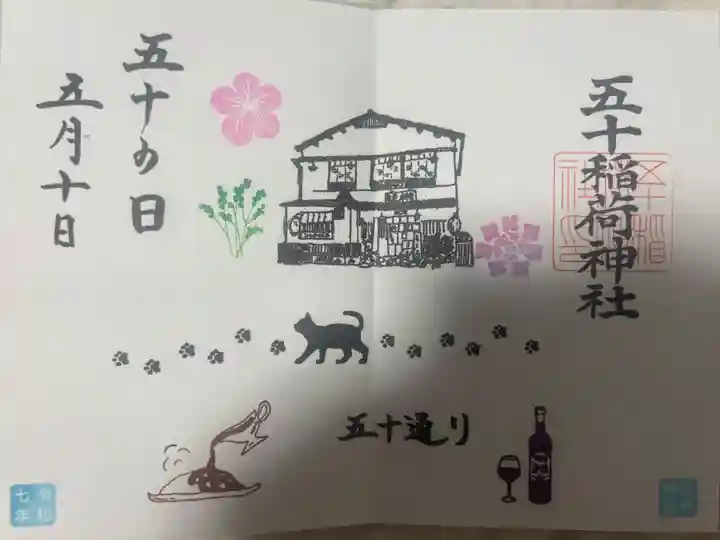 五十稲荷神社
五十の日
五月十日
五十通り
令和
七年